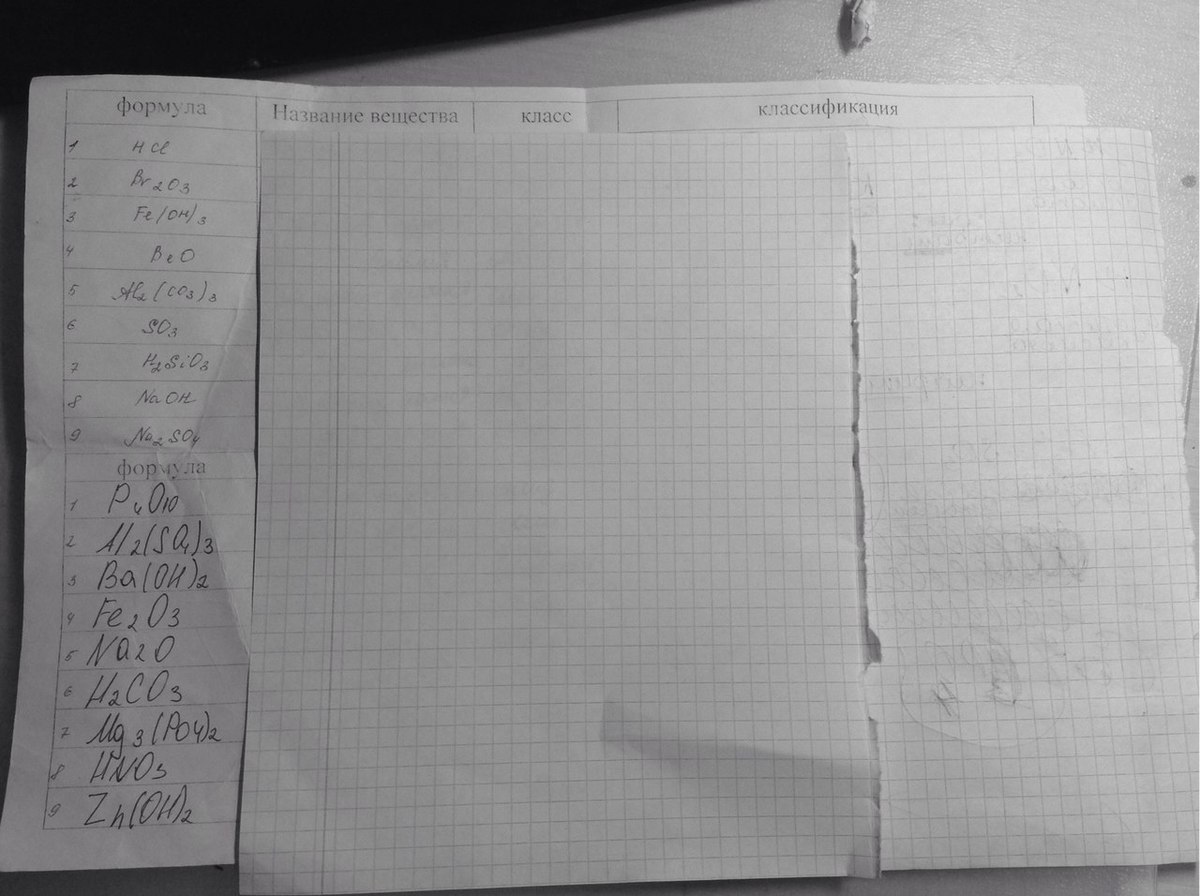 формула Название вещества класс классификация
1 HCl
2 Br2O3
3 Fe(OH)3
4 BeO
5 Al2(CO3)3
6 SO3
7 H2SiO3
8 NaOH
9 Na2SO4
формула
1 P4O10
2 Al2(SO4)3
3 Ba(OH)2
4 Fe2O3
5 Na2O
6 H2CO3
7 Mg3(PO4)2
8 HNO3
9 Zn(OH)2